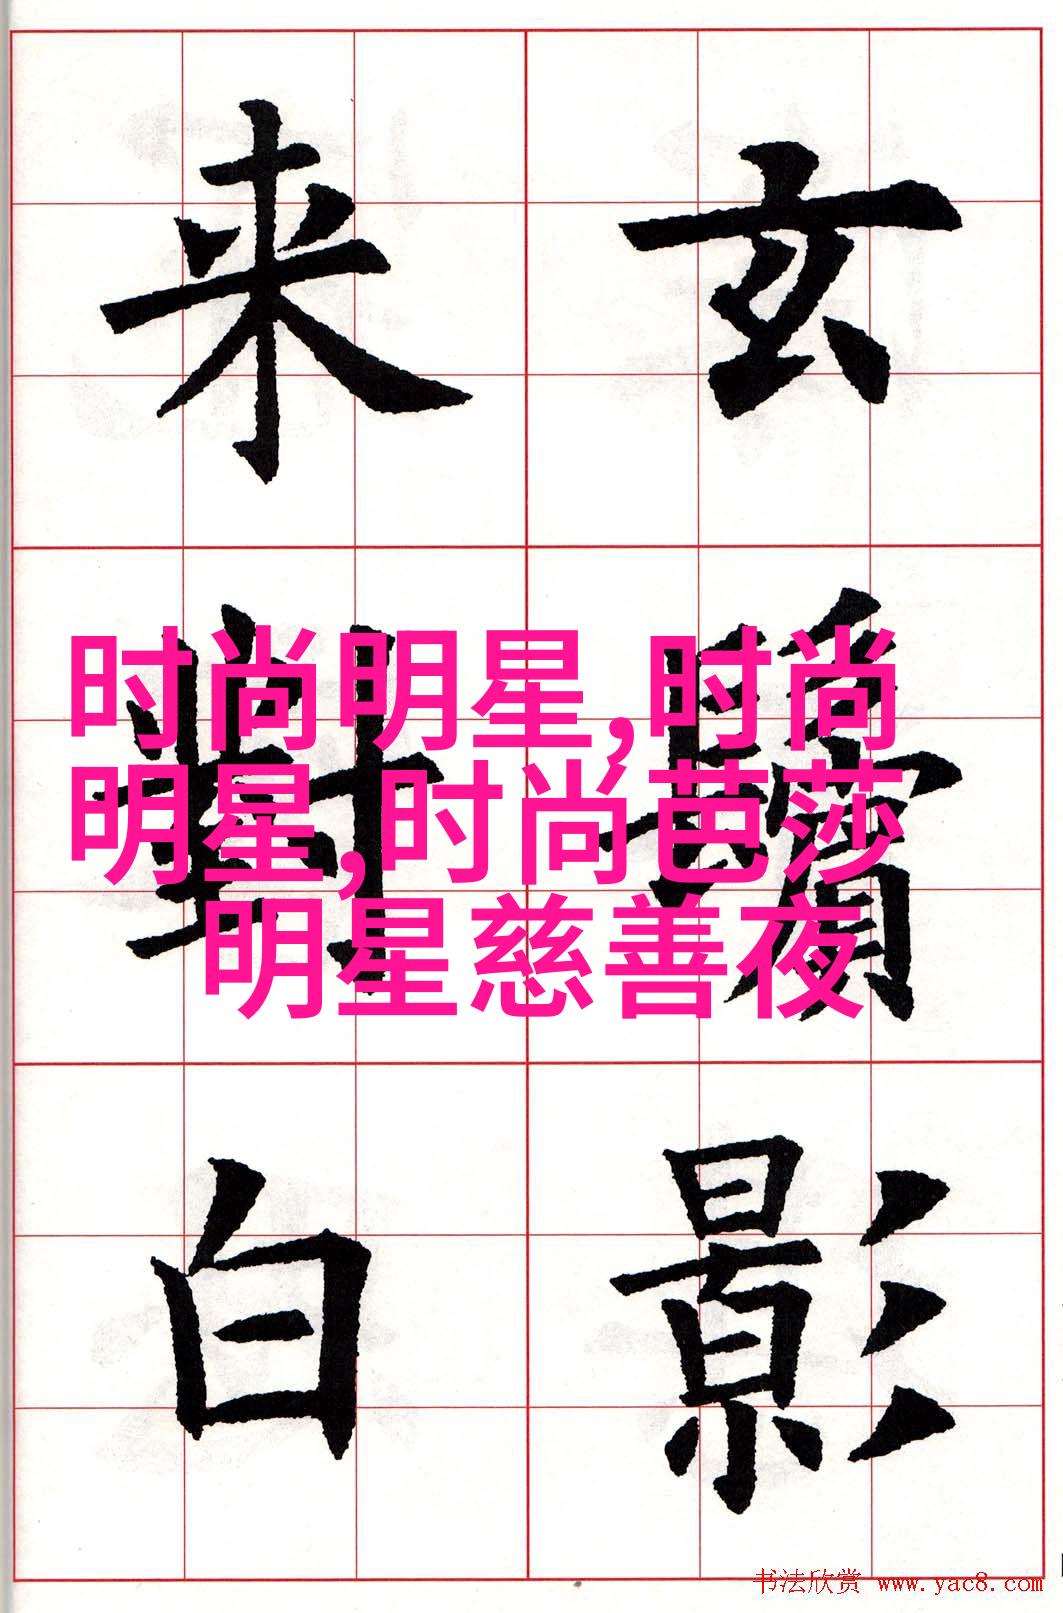 玄鬢影
来對白
时尚明星,时尚
明星,时尚芭莎
明星慈善夜
书法欣赏 www.yac8.com